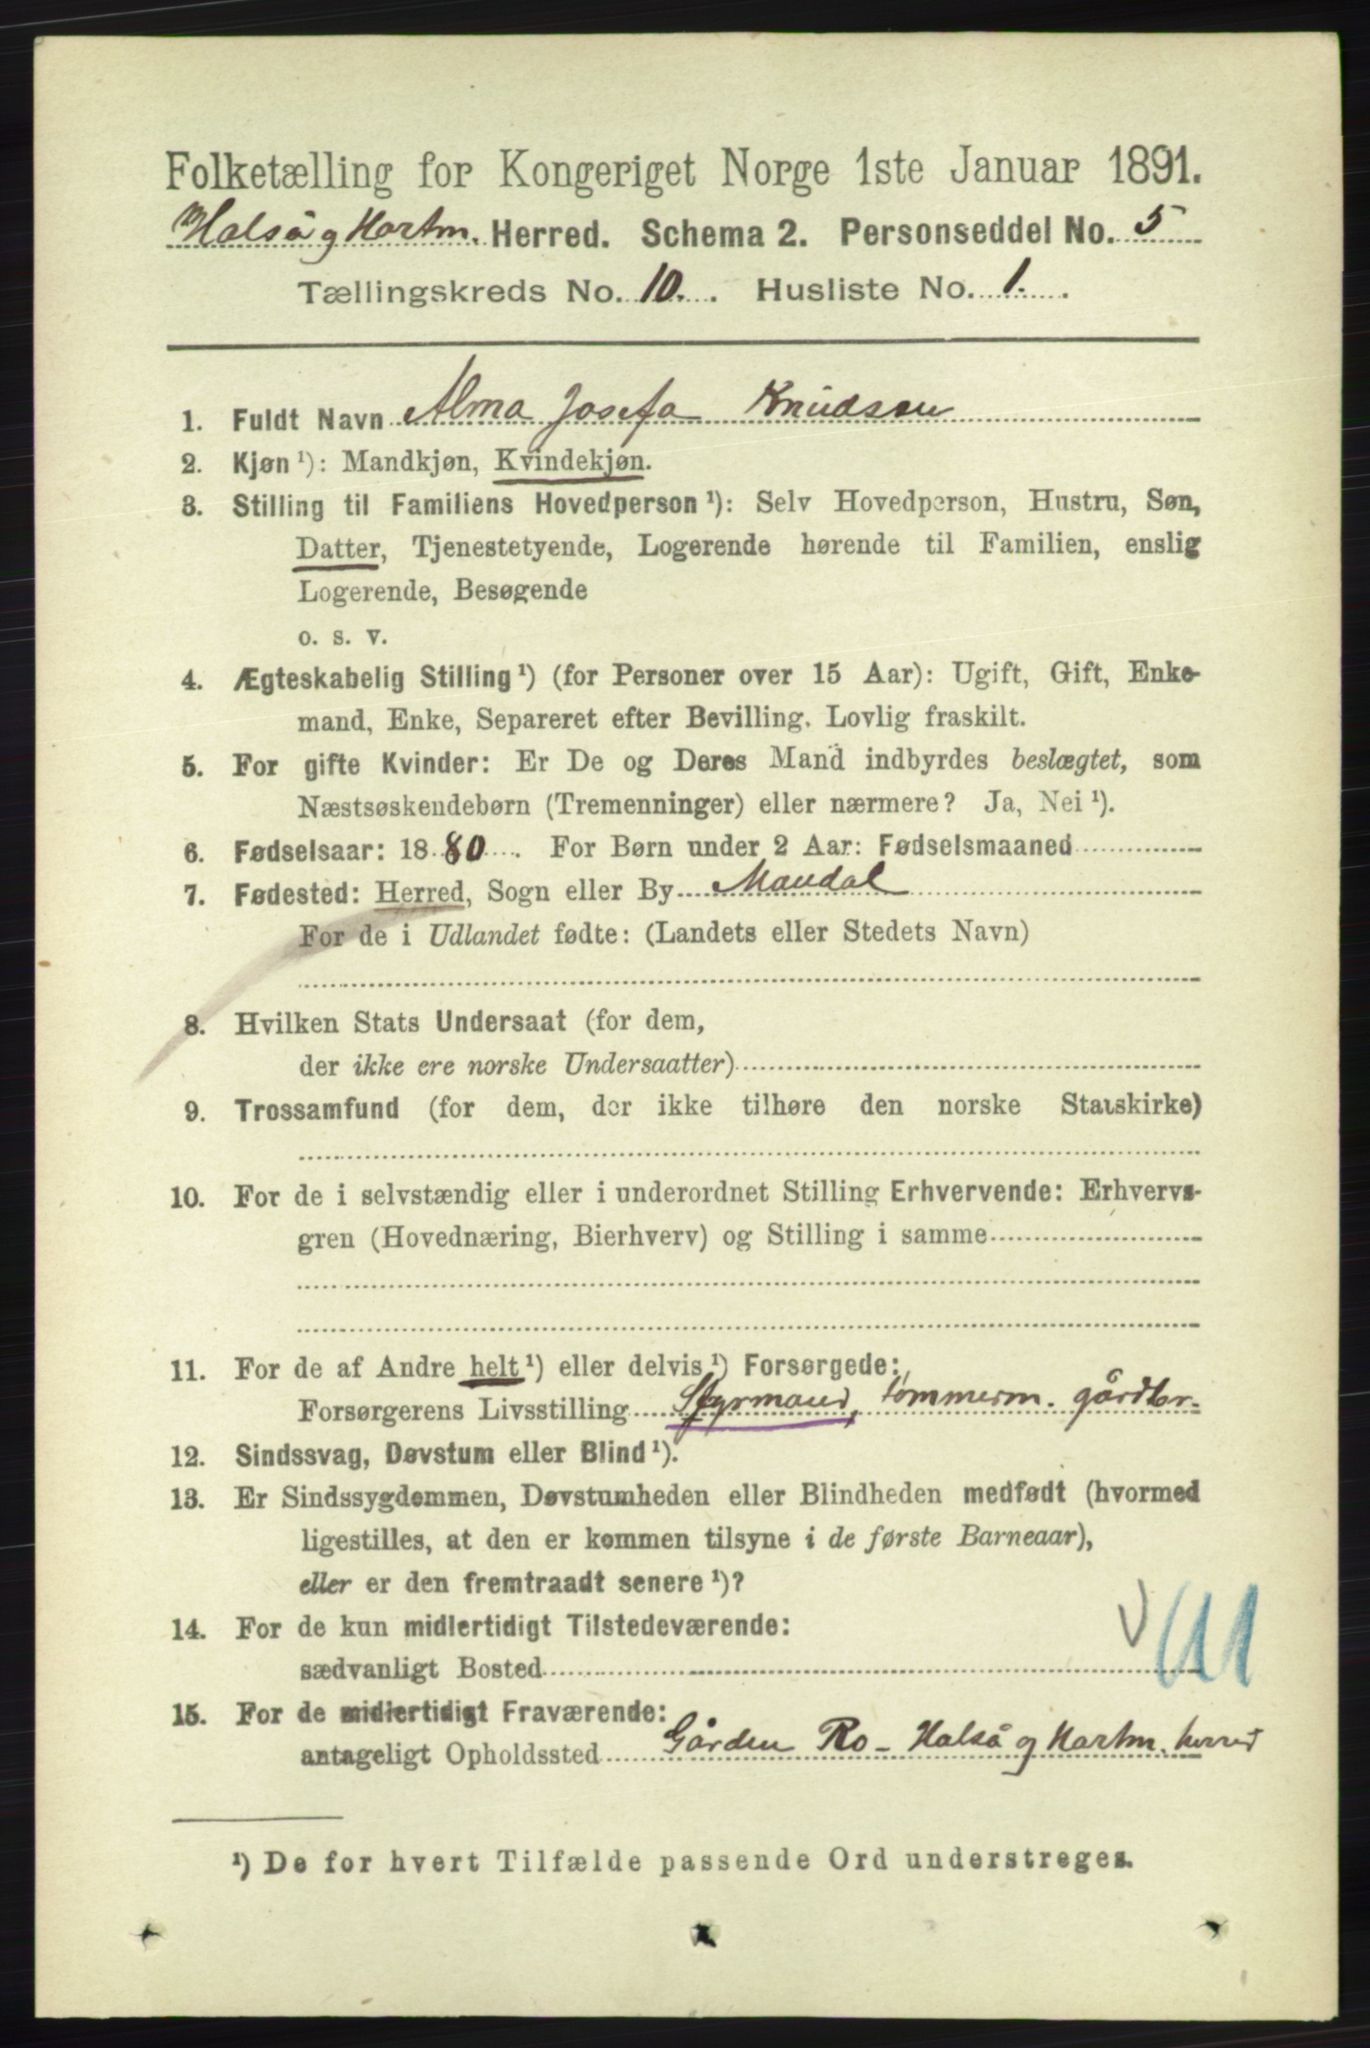 Folketælling for Kongeriget Norge 1ste Januar 1891.
Halså og Hartm. Herred. Schema 2. Personseddel No. 5
Tællingskreds No. 10. Husliste No. 1.
1. Fuldt Navn Alma Josefa Knudsen
2. Kjøn¹): Mandkjøn, Kvindekjøn.
3. Stilling til Familiens Hovedperson¹): Selv Hovedperson, Hustru, Søn,
Datter, Tjenestetyende, Logerende hørende til Familien, enslig
Logerende, Besøgende
o. s. v.
4. Ægteskabelig Stilling¹) (for Personer over 15 Aar): Ugift, Gift, Enke-
mand, Enke, Separeret efter Bevilling. Lovlig fraskilt.
5. For gifte Kvinder: Er De og Deres Mand indbyrdes beslægtet, som
Næstsøskendebørn (Tremenninger) eller nærmere? Ja, Nei¹).
6. Fødselsaar: 1880. For Børn under 2 Aar: Fødselsmaaned
7. Fødested: Herred, Sogn eller By Mandal
For de i Udlandet fødte: (Landets eller Stedets Navn)
8. Hvilken Stats Undersaat (for dem,
der ikke ere norske Undersaatter)
9. Trossamfund (for dem, der ikke tilhøre den norske Statskirke)
10. For de i selvstændig eller i underordnet Stilling Erhvervende: Erhvervs-
gren (Hovednæring, Bierhverv) og Stilling i samme
11. For de af Andre helt¹) eller delvis¹) Forsørgede:
Forsørgerens Livsstilling Styrmand, tømmerm. gårdbr.
12. Sindssvag, Døvstum eller Blind¹).
13. Er Sindssygdommen, Døvstumheden eller Blindheden medfødt (hvormed
ligestilles, at den er kommen tilsyne i de første Barneaar),
eller er den fremtraadt senere¹)?
14. For de kun midlertidigt Tilstedeværende:
sædvanligt Bosted
15. For de midlertidigt Fraværende:
antageligt Opholdssted Gården Ro - Halså og Hartm. herred
¹) De for hvert Tilfælde passende Ord understreges.